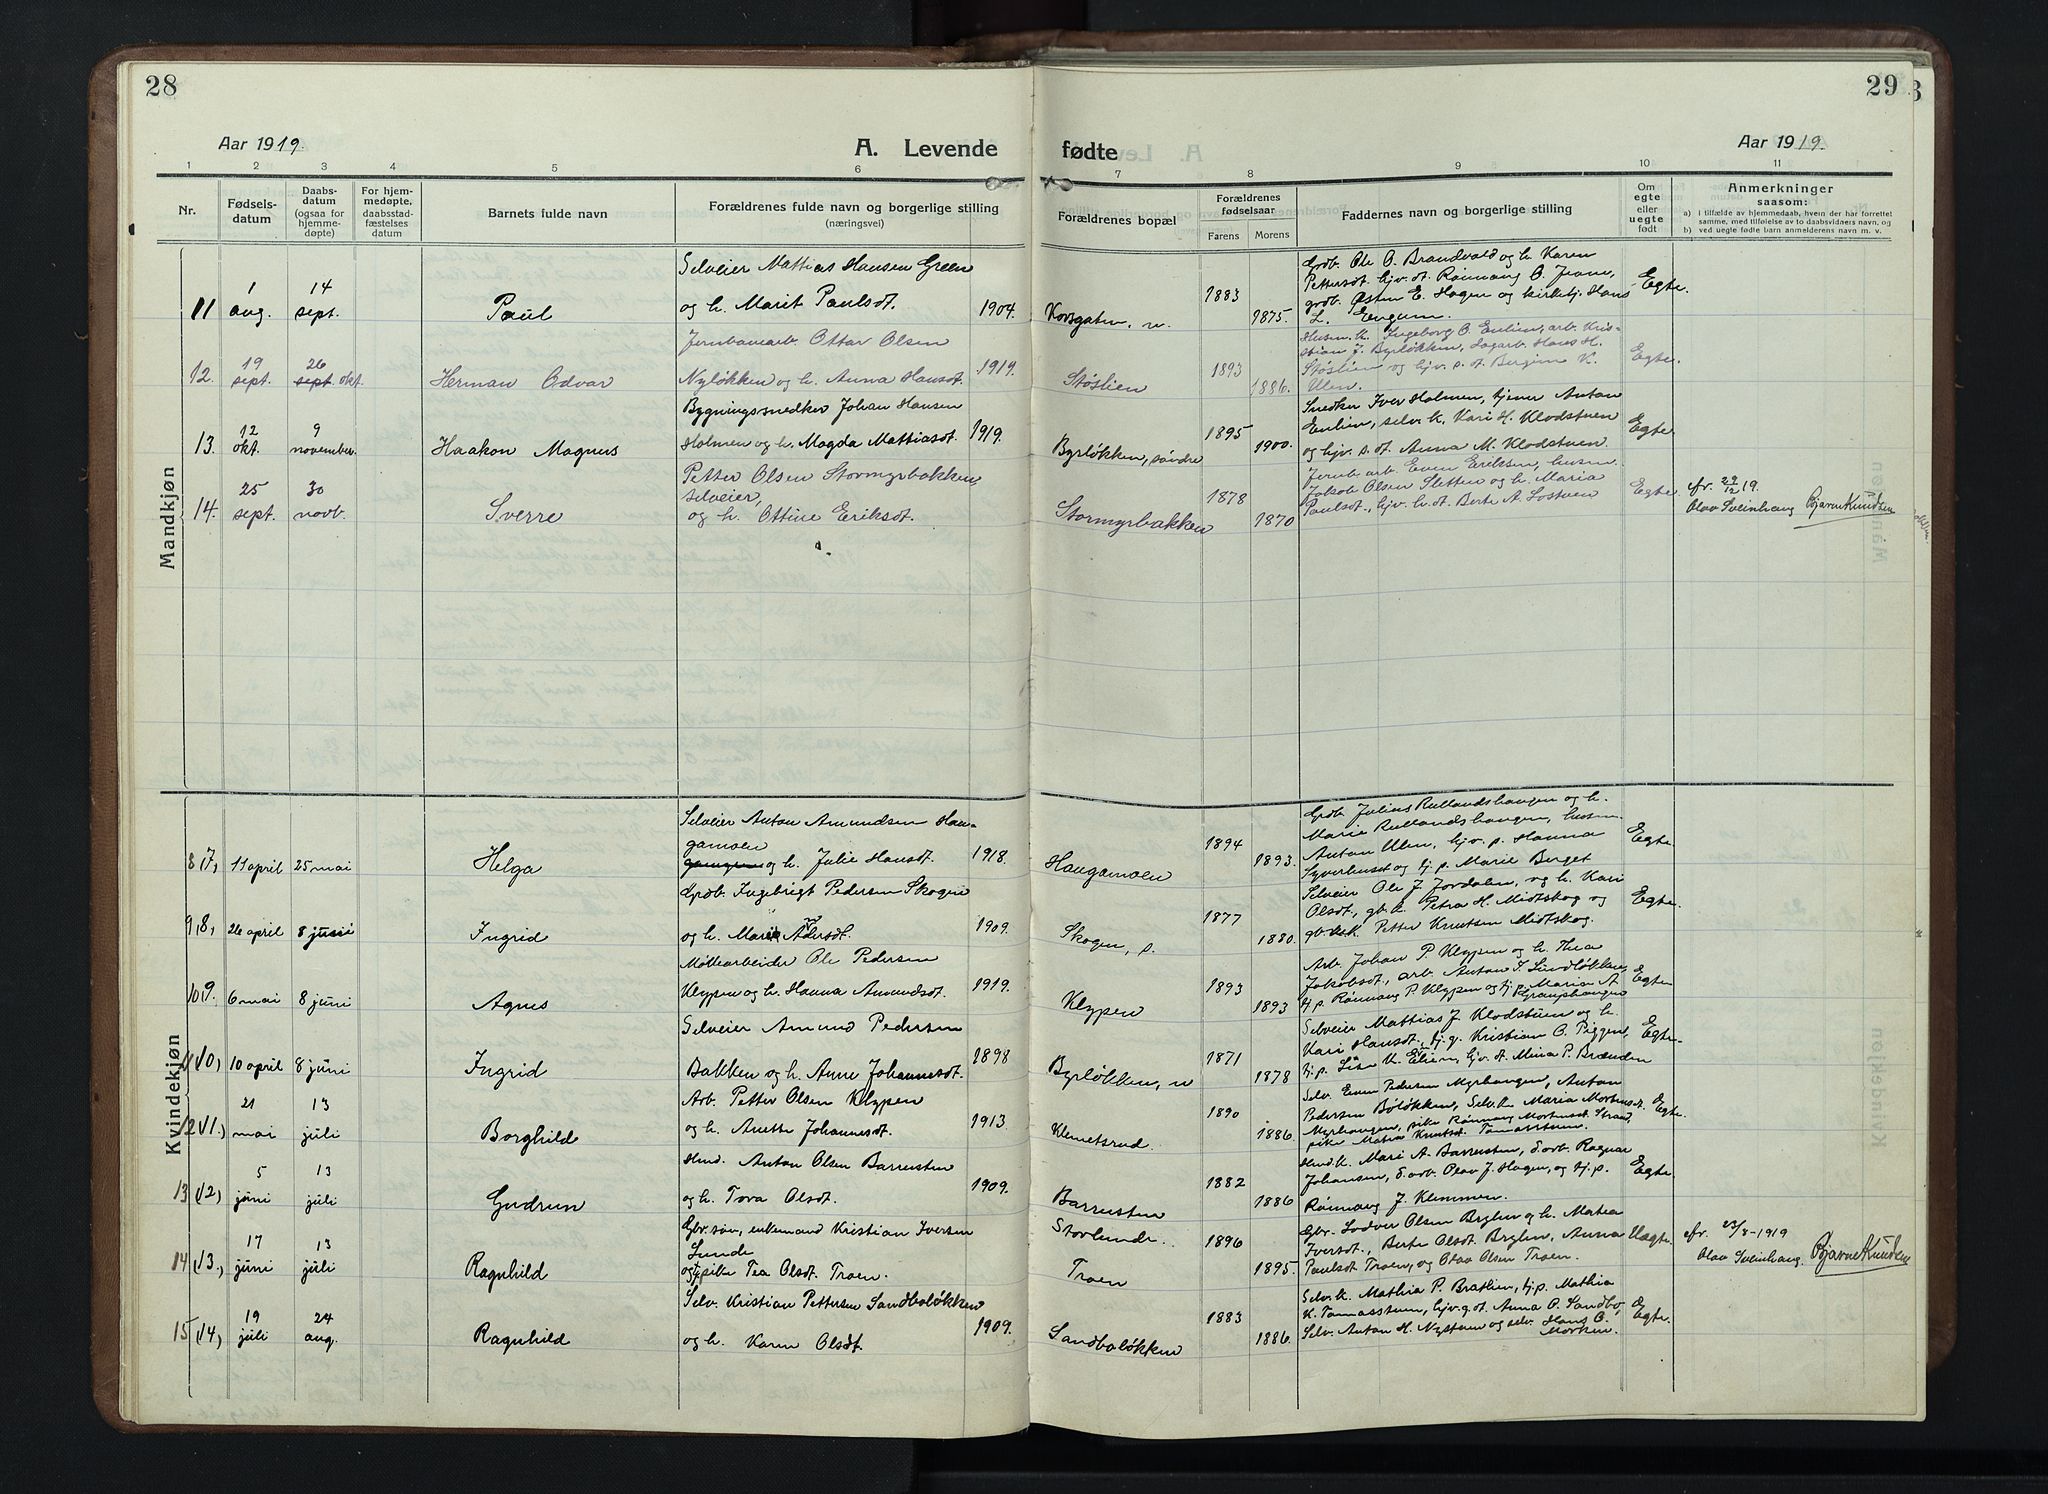 28
29
Aar 1919.
A. Levende
fødte
Aar 1919.
1 2 3 4 5 6 7 8 9 10 11
Nr.
Fødsels-
datum
Daabs-
datum
(ogsaa for
hjemme-
døpte)
For hjem-
medøpte,
daabsstad-
fæstelses
datum
Barnets fulde navn
Forældrenes fulde navn og borgerlige stilling
(næringsvei)
Forældrenes bopæl
Forældrenes
fødselsaar
Farens Morens
Faddernes navn og borgerlige stilling
Om
egte
eller
uegte
født
Anmerkninger
saasom:
a) I tilfælde av hjemmedaab, hvem der har forrettet
samme, med tilføielse av to daabsvidners navn, og
b) ved uegte fødte barn anmelderens navn m. v.
Mandkjøn
11 1 aug. 14 sept. Paul
Selveier Mattias Hansen Green
og h. Marit Paulsdt. 1904.
Korsgaten, n. 1883 1875.
Grdb. Ole O. Brandvold og h. Karen
Pettersdt. hjv. dt. Rønnaug O.
grdb. Østen E. Hagen og kirketj. Hans
L. Engum.
Egte.
12. 19 sept. 26 sept. okt. Herman Odvar
Jernbanearb. Ottar Olsen
Nyløkken og h. Anna Hansdt. 1919.
Støslien 1893 1886.
Husm. k. Ingeborg O. Enlien, arb. Kris-
stian J. Byrløkken, Sagarb. Hans H.
Støslien og hjv. p. dt. Bergine K.
Ulen.
Egte.
13. 12 okt. 9 november. Haakon Magnus
Bygningssnedker Johan Hansen
Holmen og h. Magda Mattiasdt. 1919.
Byrløkken, søndre 1895 1900.
Snedker Iver Holmen, tjener Anton
Enlien, selv. k. Kari H. Klodstuen
og hjv. s. dt. Anna M. Klodstuen.
Egte.
14. 25 sept. 30 novb. Sverre
Petter Olsen Stormyrbakken,
selveier,
og h. Ottine Eriksdt.
Stormyrbakken 1878 1870
Jernb. arb. Even Eriksen, husm.
Jakob Olsen Sletten og h. Maria
Paulsdt., hjv. h. dt. Berte A. Sostuen
Egte.
efr. 29/12 19.
Olav Sveinhaug Bjarne Knudsen
Kvindekjøn
8 (7) 11 april 25 mai Helga
Selveier Anton Amundsen Hau-
gamoen
og h. Julie Hansdt. 1918.
Haugamoen 1894 1893.
Grdb. Julius Rullandshaugen og h.
Marie Rullandshaugen, husm.
Anton Ulen, hjv. p. Hanna
Syverhuset og tj. p. Marie Berget
Egte.
9 (8) 26 april 8 juni Ingrid
Grdb. Ingebrigt Pedersen Skogen
og h. Marie Andersdt. 1909.
Skogen, s. 1877 1880.
Selveier Ole J. Jordalen, og h. Kari
Olsdt., gb. k. Petra H. Midtskog og
gb. Petter Knutsen Midtskog.
Egte.
10 9. 6 mai 8 juni Agnes
Møllearbeider Ole Pedersen
Klypen og h. Hanna Amundsdt. 1919.
Klypen 1893 1893
Arb. Johan P. Klypen og h. Thea
Jakobsdt., arb. Anton J. Lindløkken,
tj. p. Rønnaug P. Klypen og tj. Maria A
Egte
11 (10) 10 april 8 juni Ingrid
Selveier Amund Pedersen
Bakken og h. Anne Johannesdt. 1898
Byrløkken, n 1871 1878
Selveier Mattias J. Klodstuen og h.
Kari Hansdt., tj. g. Kristian O. Piggen,
tj. p. Lisa K. Elien, hjv. dt. Mina P. Brænden
Egte.
12 (11.) 21 mai 13 juli Borghild
Arb. Petter Olsen Klypen
og h. Anette Johannesdt. 1913.
Klemetsrud. 1890 1886.
Selv. Even Pedersen Myrhaugen, Anton
Pedersen Bøløkken, Selv. k. Maria Mortensdt.
Myrhaugen, pike Rønnaug Mortensdt. Strand,
pike Matea Knutsdt. Tomasstuen.
Egte.
13 (12) 5 juni 13 juli Gudrun
Husd. Anton Olsen Barrusten
og h. Tova Olsdt. 1909.
Barrusten 1882 1886
Husd. k. Mari A. Barrusten, s. arb. Ragnar
Johansen, s. arb. Olav J. Hagen, og tj. p.
Rønnaug J. Klemmen.
Egte.
14 (13.) 17 juni 13 juli Ragnhild
Gbr. søn, enkemand Kristian Iversen
Lunde
og pike Tea Olsdt. Troen.
Storlunde. 1896
Troen 1895.
Gbr. Lodver Olsen Brylen og h. Matea
Iversdt., Berte Olsdt. Brylen, Anna
Paulsdt. Troen, og Olaa Olsen Troen.
Uegte.
efr. 23/8-1919
Olav Sveinhaug. Bjarne Knudsen
15 (14) 19 juli 24 aug. Ragnhild
Selv. Kristian Pettersen Sandboløkken
og h. Karen Olsdt. 1909.
Sandboløkken 1883 1886.
Selv. k. Mathia P. Bratlien, tj. p. Mathia
K. Tomasstuen, hjv. g. dt. Anna O. Sandbo,
Selv. Anton H. Nystuen og selv. Hans O.
Morken.
Egte.